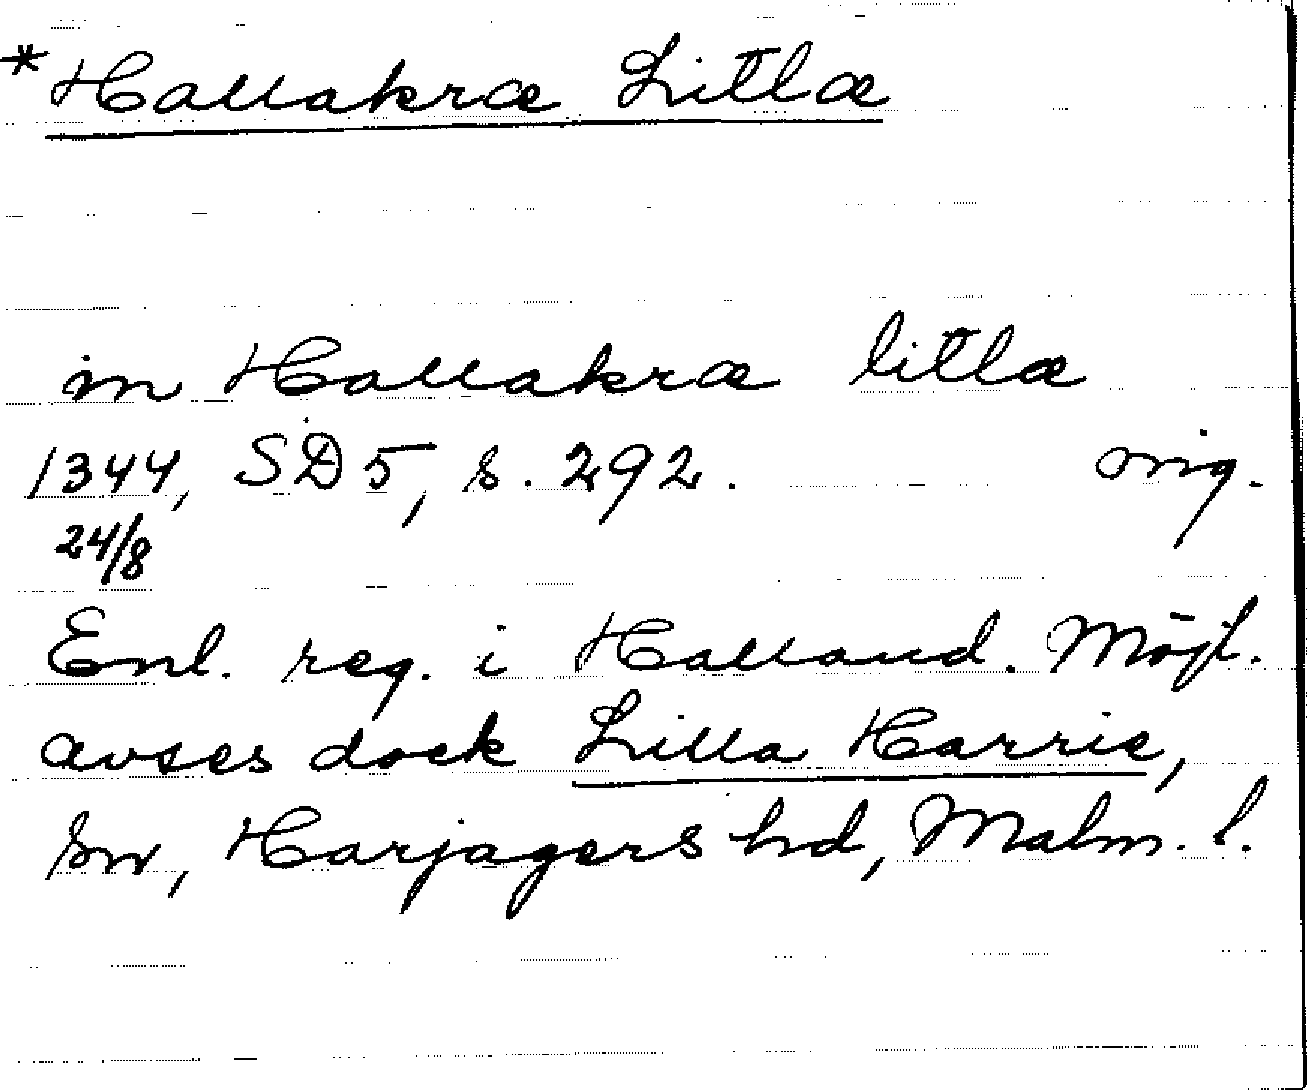 *Hallakræ Litlæ
in Hallakræ litlæ
1344, SD 5, s. 292. orig.
24/8
Enl. reg. i Halland. Möjl.
avses dock Lilla Harrie,
sn, Harjagers hd, Malm. l.